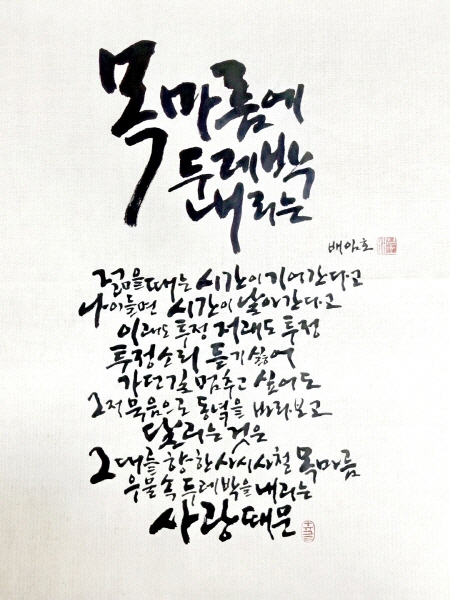 목마름에
두레박
내리는
배암호
젊을때는 시간이 기어간다고
나이들면 시간이 날아간다고
이래도 투정 저래도 투정
투정소리 듣기 싫어
가던길 멈추고 싶어도
그저 묵음으로 동녘을 바라보고
달리는 것은
그대를 향한 사시사철 목마름
우물속 두레박을 내리는
사랑때문